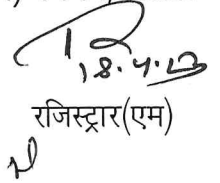 18.4.23
रजिस्ट्रार(एम)